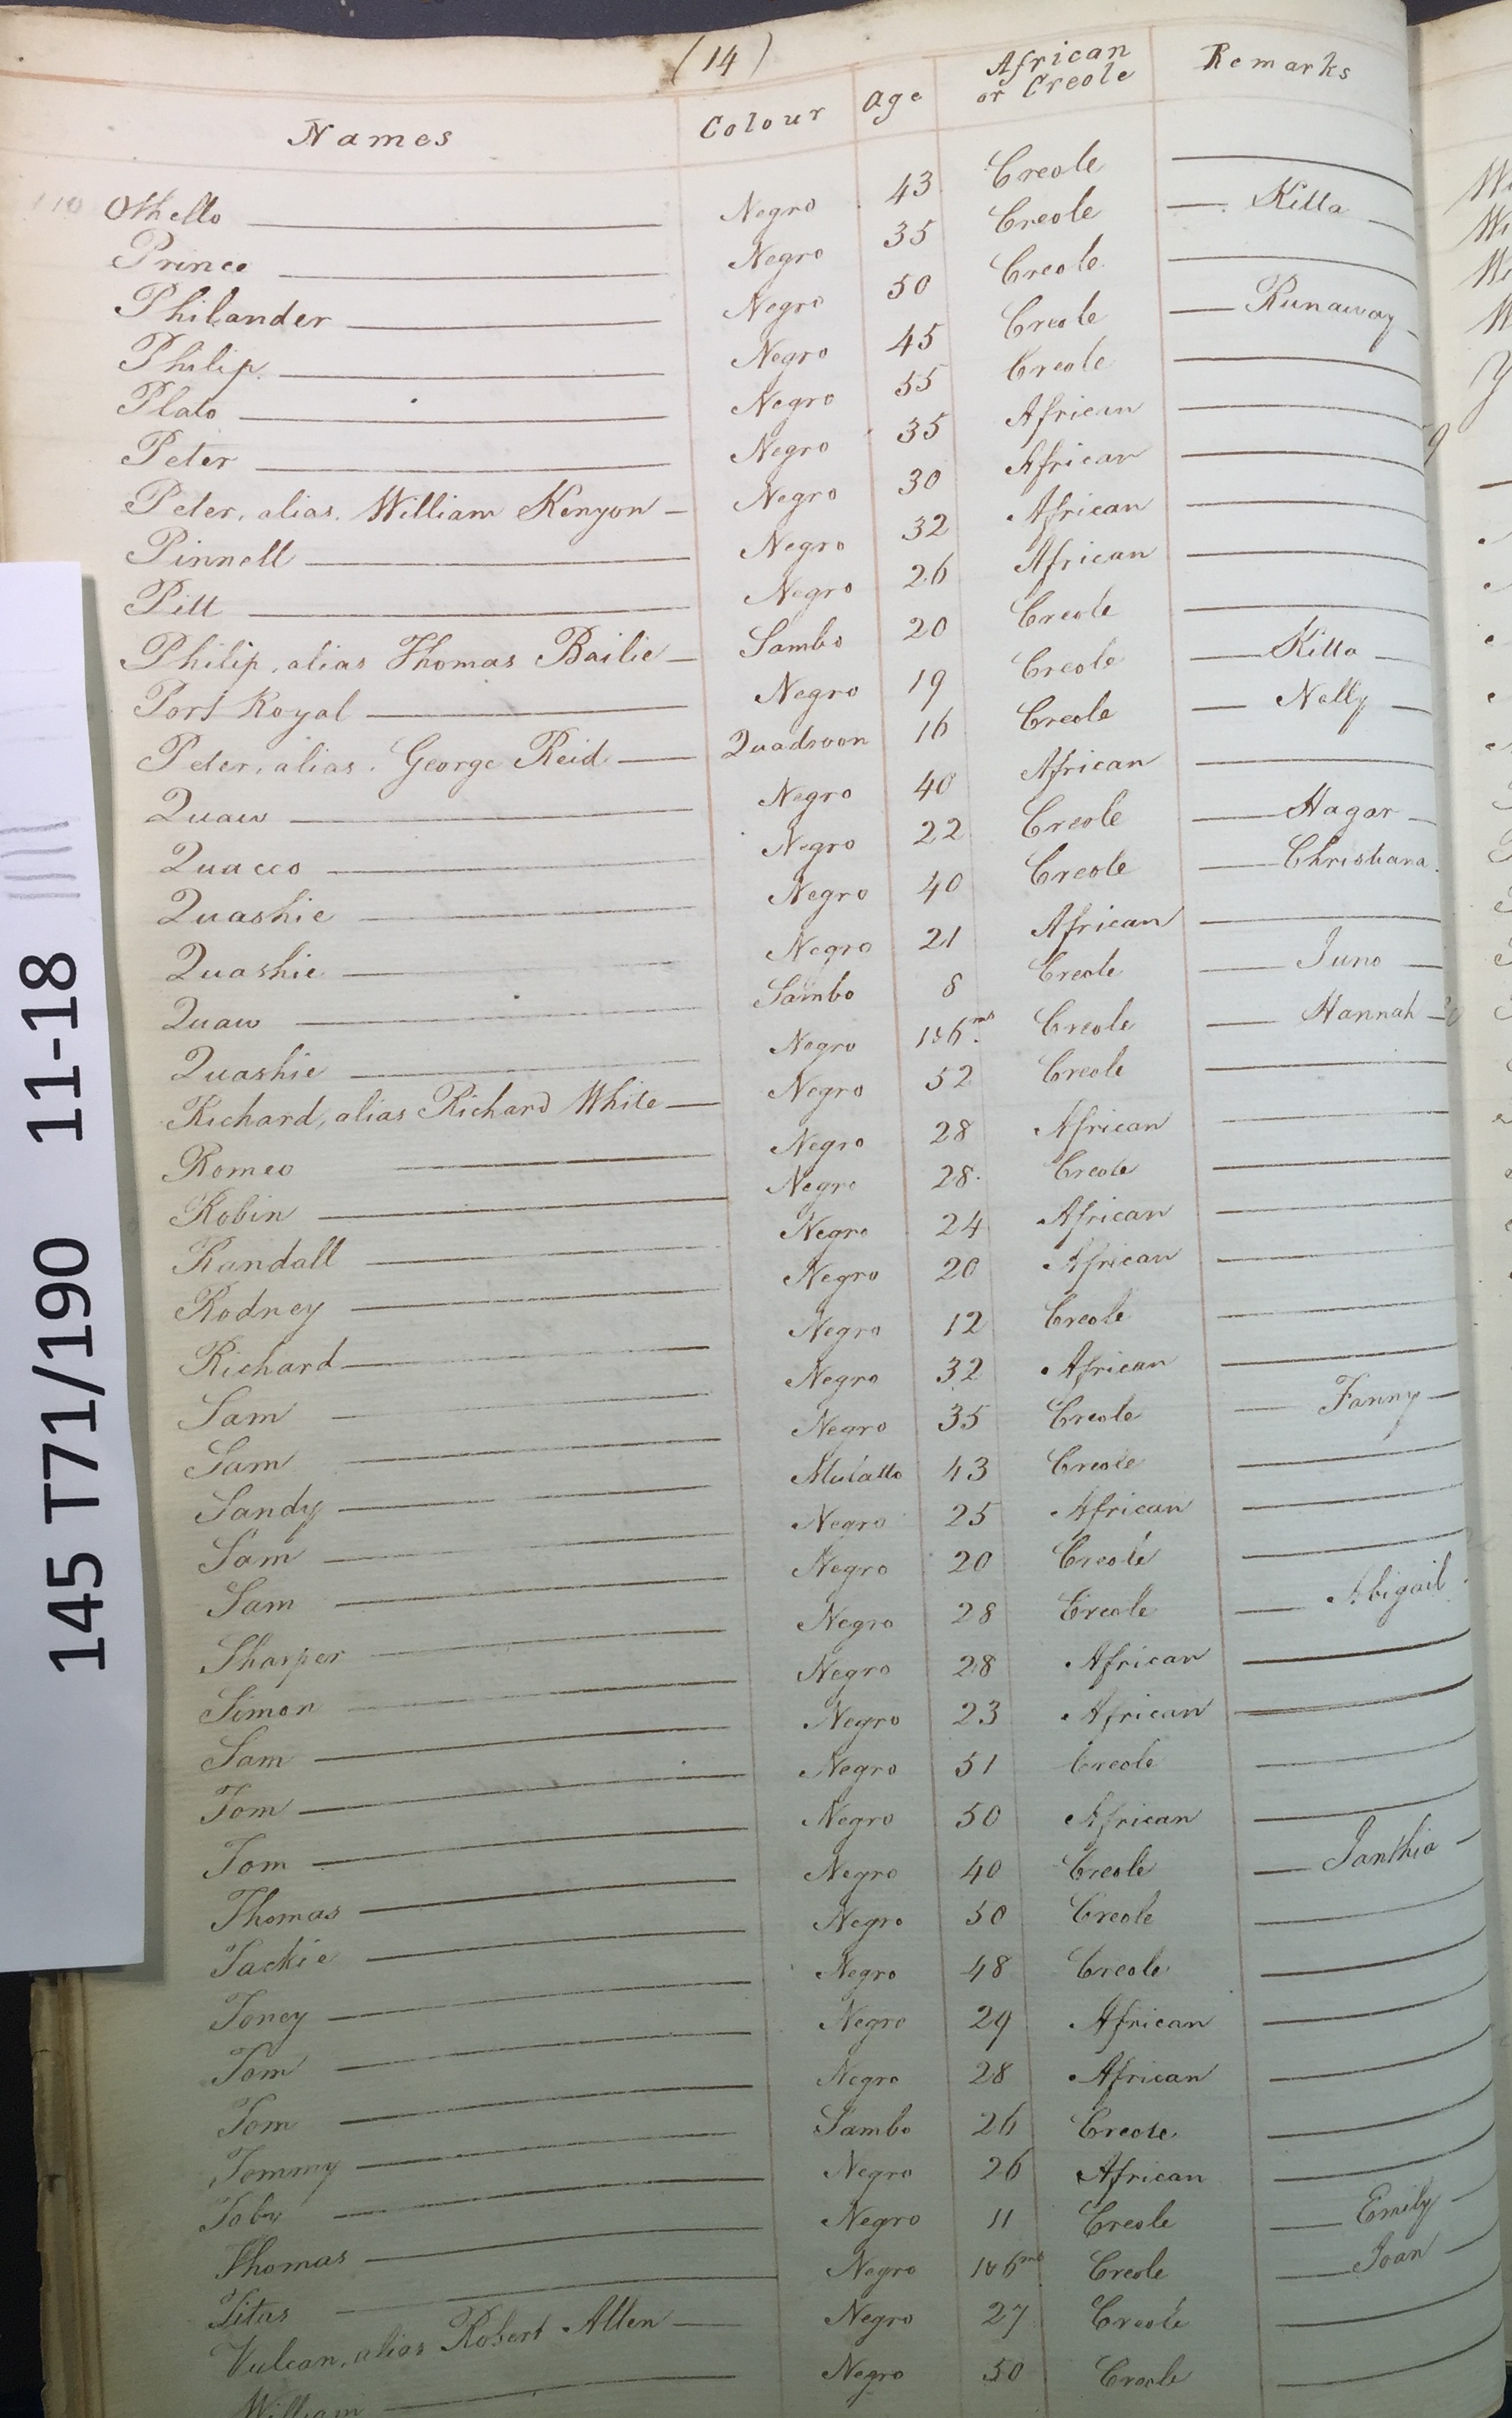 (14)
Names Colour Age African or Creole Remarks
110 Othello Negro 43 Creole
Prince Negro 35 Creole Kitta
Philander Negro 50 Creole
Philip Negro 45 Creole Runaway
Plato Negro 55 Creole
Peter Negro 35 African
Peter, alias. William Kenyon Negro 30 African
Pinnell Negro 32 African
Pitt Negro 26 African
Philip, alias Thomas Bailie Sambo 20 Creole
Port Royal Negro 19 Creole Kitta
Peter, alias. George Reid Quadroon 16 Creole Nelly
Quaw Negro 40 African
Quacco Negro 22 Creole Hagar
Quashie Negro 40 Creole Christiana
Quashie Negro 21 African
Quaw Sambo 8 Creole Juno
Quashie Negro 1&6ms Creole Hannah
Richard, alias Richard White Negro 52 Creole
Romeo Negro 28 African
Robin Negro 28 Creole
Randall Negro 24 African
Rodney Negro 20 African
Richard Negro 12 Creole
Sam Negro 32 African
Sam Negro 35 Creole Fanny
Sandy Mulatto 43 Creole
Sam Negro 25 African
Sam Negro 20 Creole
Sharper Negro 28 Creole Abigail
Simon Negro 28 African
Sam Negro 23 African
Tom Negro 51 Creole
Tom Negro 50 African
Thomas Negro 40 Creole Janthia
Tackie Negro 50 Creole
Toney Negro 48 Creole
Tom Negro 29 African
Tom Negro 28 African
Tommy Sambo 26 Creole
Toby Negro 26 African
Thomas Negro 11 Creole Emily
Titus Negro 1&6ms Creole Joan
Vulcan, alias Robert Allen Negro 27 Creole
William Negro 50 Creole
145 T71/190 11-18